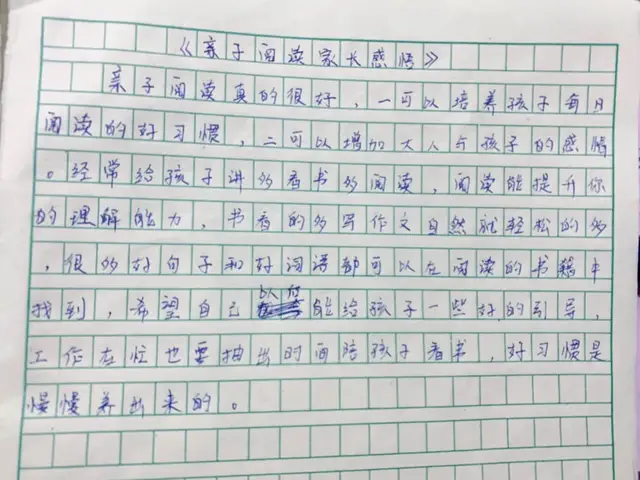 《亲子阅读家长感悟》
亲子阅读真的很好，一可以培养孩子每日
阅读的好习惯，二可以增加大人与孩子的感情
。经常给孩子讲多看书多阅读，阅读能提升你
的理解能力，书看的多写作文自然就轻松的多
，很多好句子和好词语都可以在阅读的书籍中
找到，希望自己以后能给孩子一些好的引导，
工作在忙也要抽出时间陪孩子看书，好习惯是
慢慢养出来的。